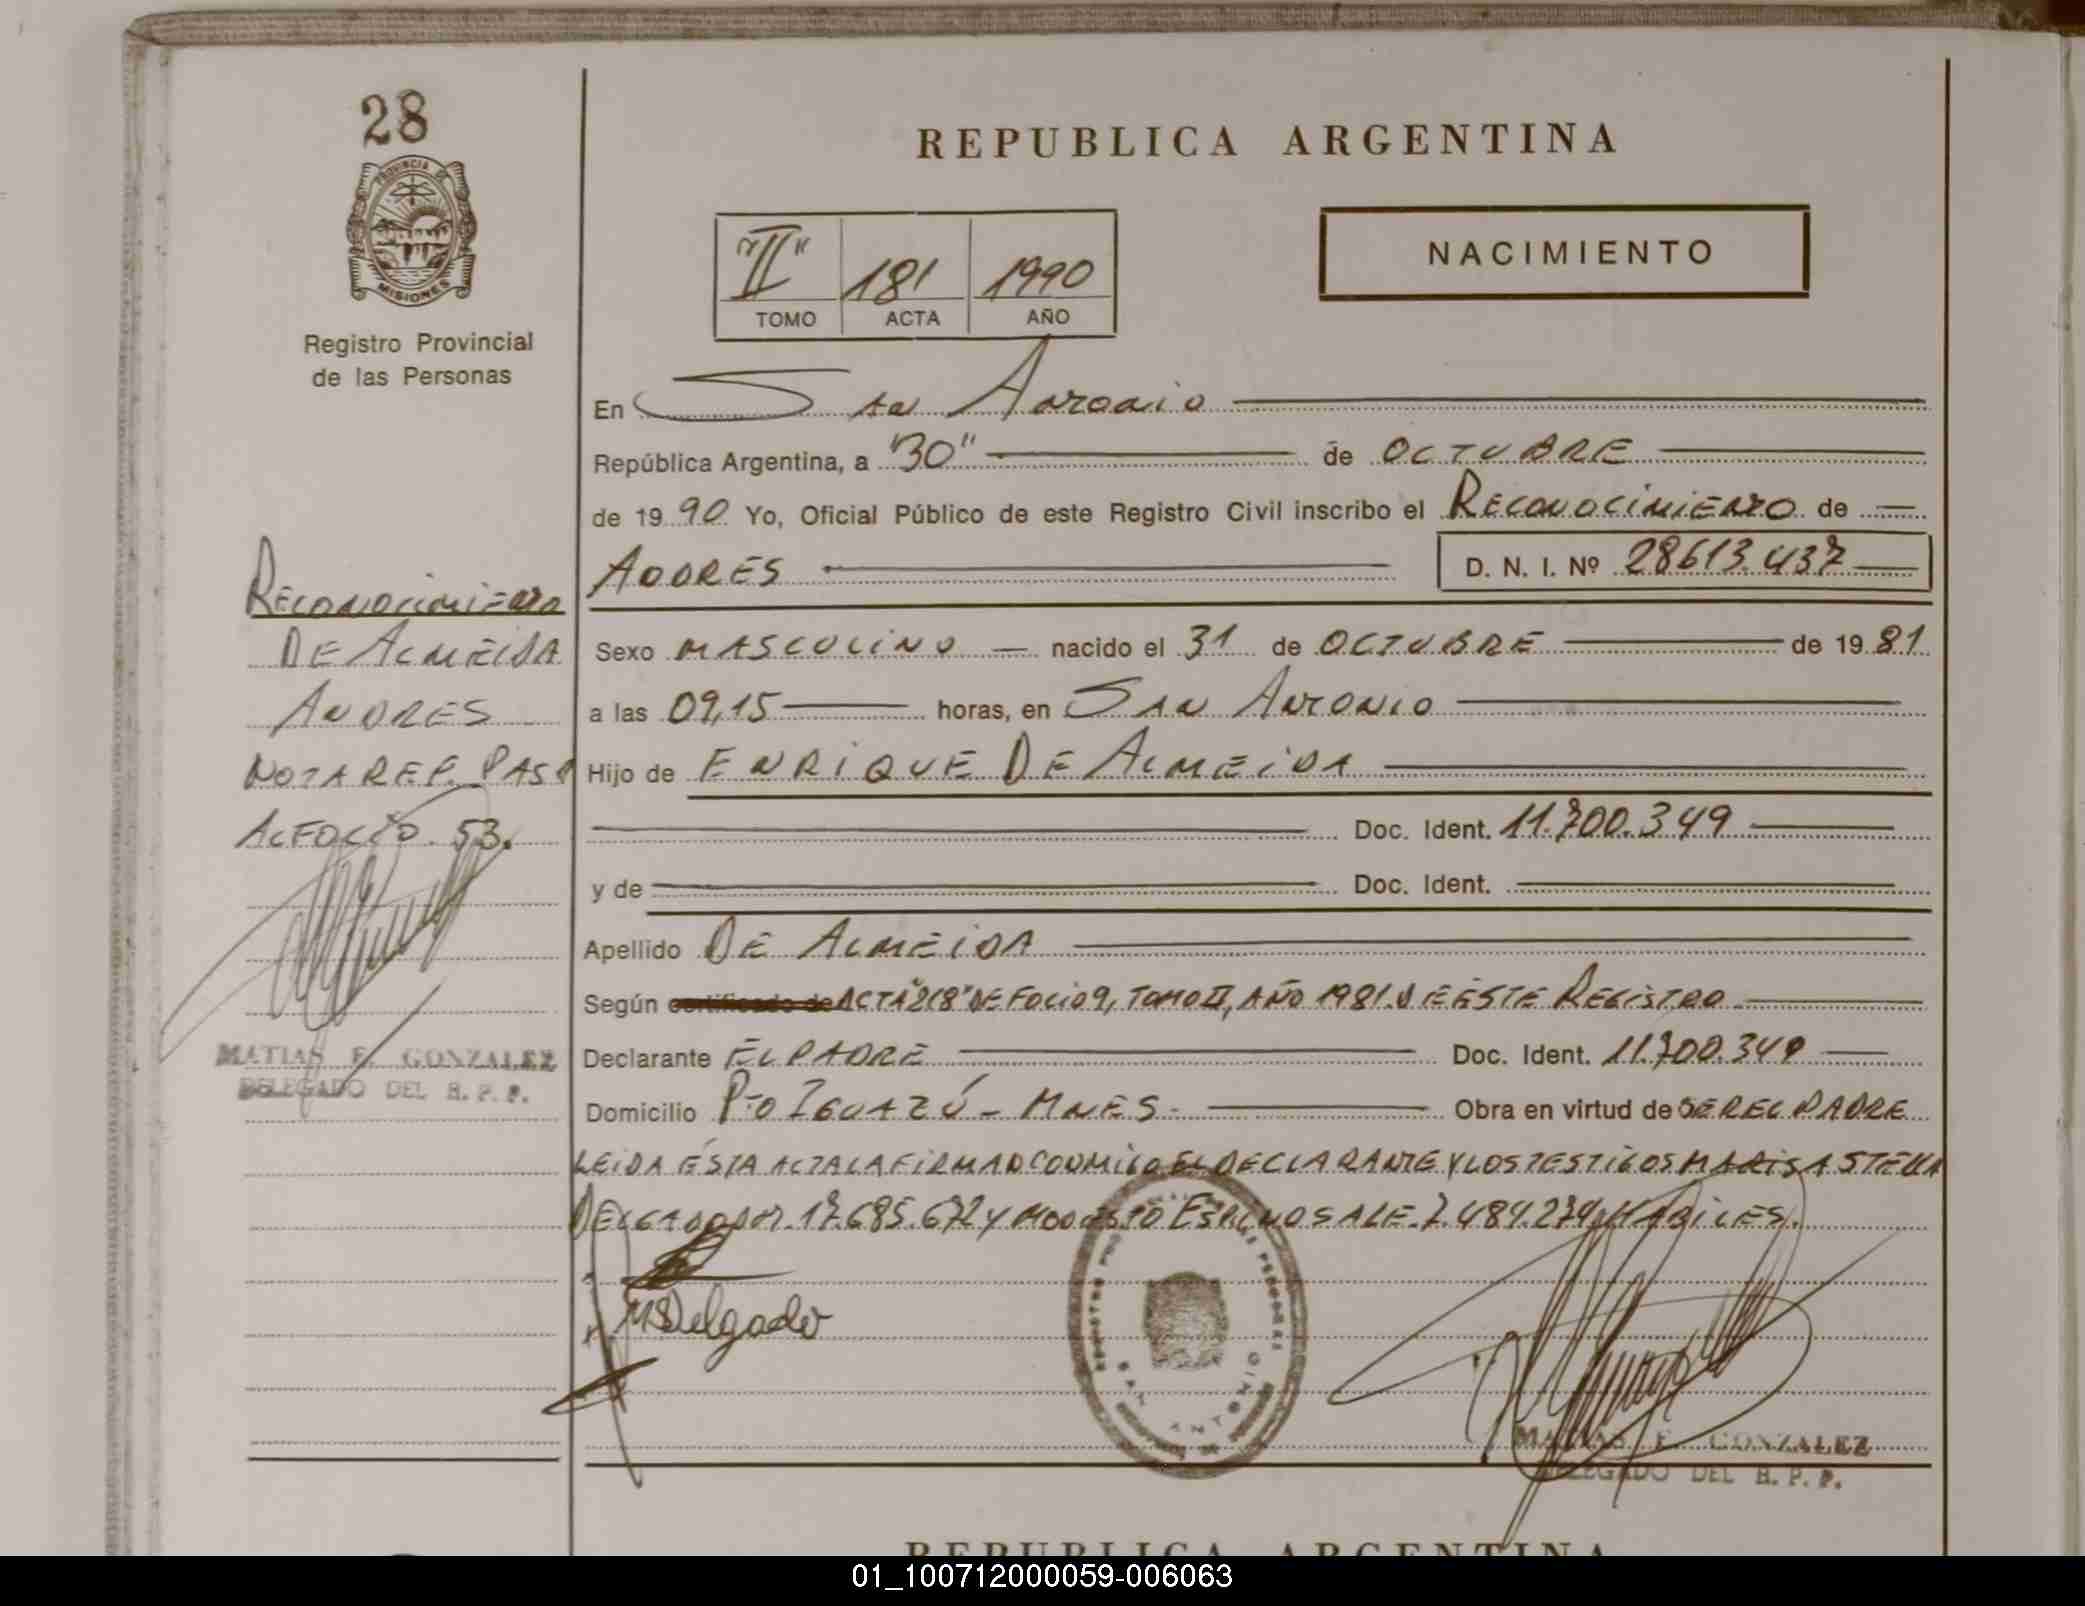 28
PROVINCIA DE
MISIONES
Registro Provincial
de las Personas
REPUBLICA ARGENTINA
NACIMIENTO
"II" 181 1990
TOMO ACTA AÑO
En San Antonio
República Argentina, a "30" de OCTUBRE
de 1990 Yo, Oficial Público de este Registro Civil inscribo el RECONOCIMIENTO de
ANDRES D. N. I. Nº 28613.437
Sexo MASCULINO nacido el 31 de OCTUBRE de 1981
a las 09,15 horas, en SAN ANTONIO
Hijo de ENRIQUE DE ALMEIDA
Doc. Ident. 11.700.349
y de Doc. Ident.
Apellido DE ALMEIDA
Según certificado de ACTA "218" DE FOLIO 9, TOMO II, AÑO 1981. DE ÉSTE REGISTRO
Declarante EL PADRE Doc. Ident. 11.700.349
Domicilio Pto IGUAZÚ - MNES - Obra en virtud de SER EL PADRE
LEIDA ÉSTA ACTA LA FIRMAN CONMIGO EL DECLARANTE Y LOS TESTIGOS MARISA STELLA
DELGADO DNI. 17.685.672 Y MODESTO LE. 7.484.274 HABILES.
MSDelgado
SAN ANTONIO
MATIAS F. GONZALEZ
DELEGADO DEL R. P. P.
RECONOCIMIENTO
DE ALMEIDA
ANDRES
NOTA REF. PASA
AL FOLIO 53.
MATIAS F. GONZALEZ
DELEGADO DEL R. P. P.
REPUBLICA ARGENTINA
01_100712000059-006063